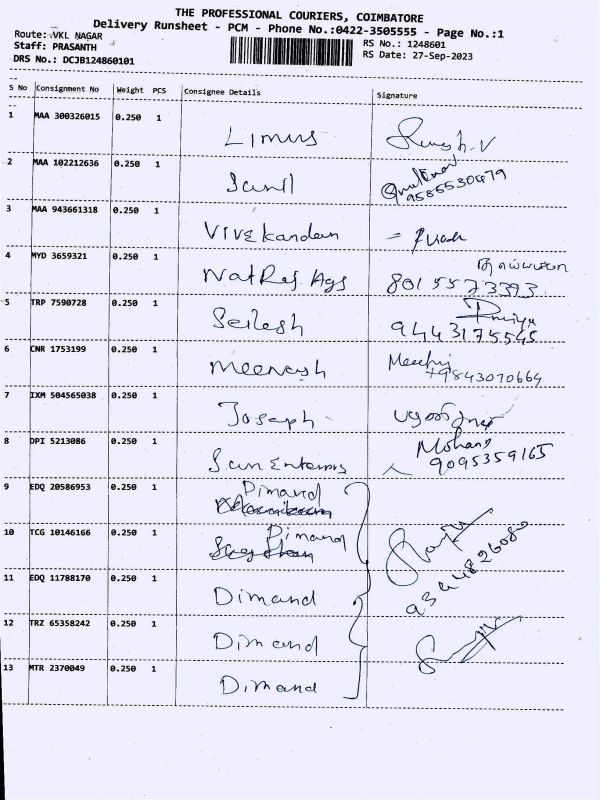 THE PROFESSIONAL COURIERS, COIMBATORE
Delivery Runsheet - PCM - Phone No.:0422-3505555 - Page No.:1
Route: VKL NAGAR
RS No.: 1248601
Staff: PRASANTH
RS Date: 27-Sep-2023
DRS No.: DCJB124860101
S No Consignment No Weight PCS Consignee Details Signature
1 MAA 300326015 0.250 1 Limus
2 MAA 102212636 0.250 1 Sunil 9585530479
3 MAA 943661318 0.250 1 Vivekandan
4 MYD 3659321 0.250 1 NatRaj Ags 8015573393
5 TRP 7590728 0.250 1 Seilesh Priya
9443175545
6 CNR 1753199 0.250 1 Meenash
+9843070664
7 IXM 504565038 0.250 1 Joseph
8 DPI 5213086 0.250 1 Mohans
9095359165
9 EDQ 20586953 0.250 1 Dimand
10 TCG 10146166 0.250 1 Dimand
11 EDQ 11788170 0.250 1 Dimand
12 TRZ 65358242 0.250 1 Dimand
13 MTR 2370049 0.250 1 Dimand